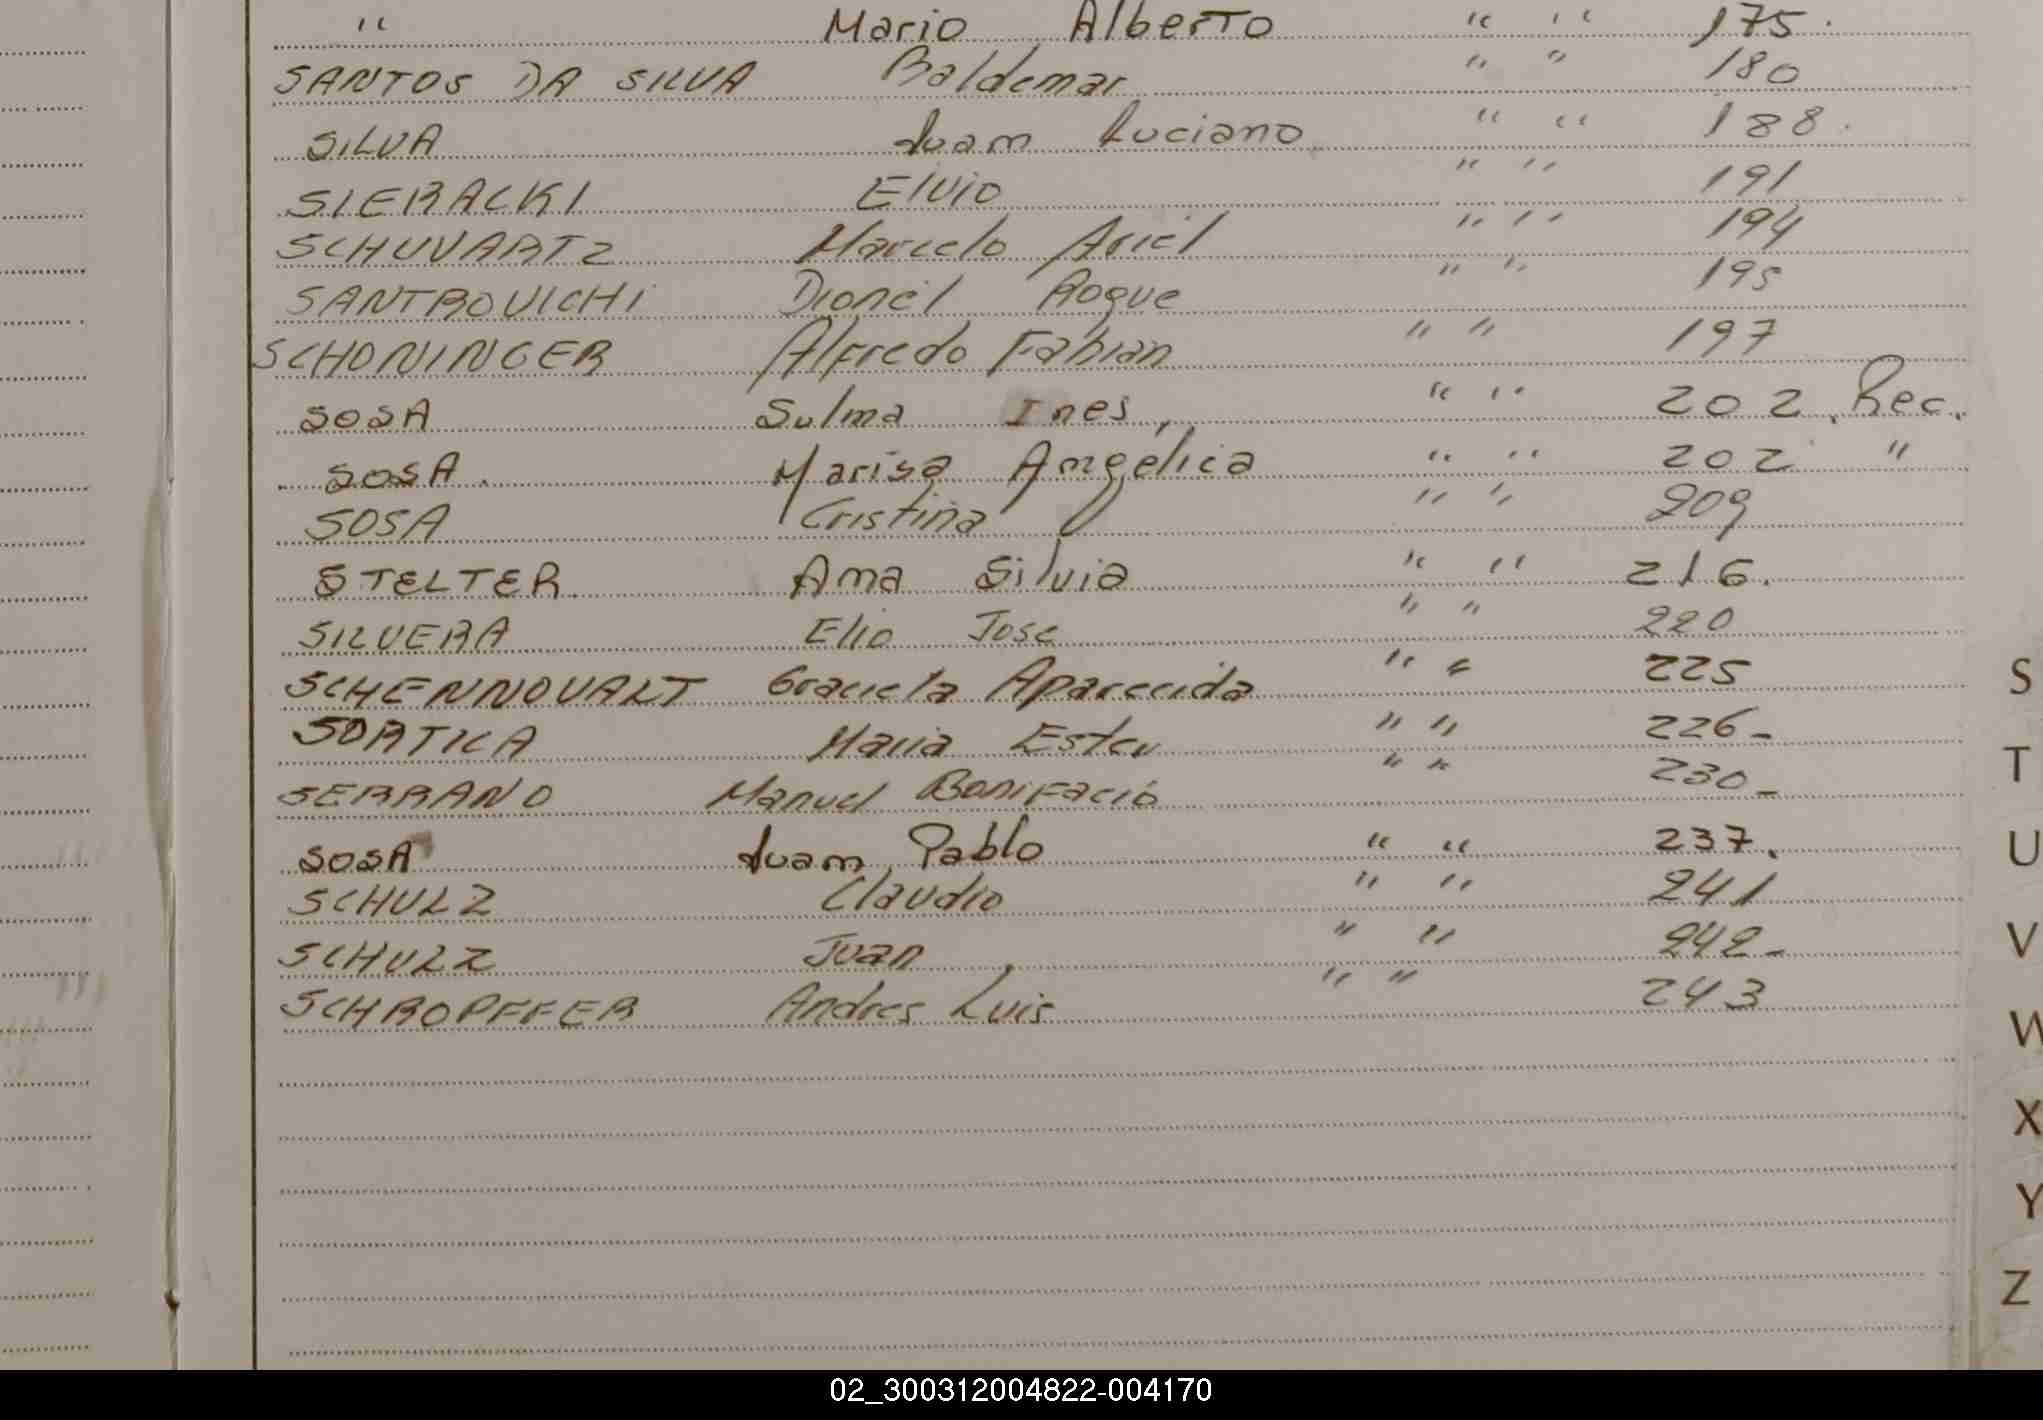 " Mario Alberto " " 175.
SANTOS DA SILVA Baldemar " " 180
SILVA Juam Luciano " " 188.
SIERACKI Elvio " " 191
SCHUVARTZ Marcelo Ariel " " 194
SANTROVICHI Dionel Roque " " 195
SCHONINGER Alfredo Fabian " " 197
SOSA Sulma Ines " " 202. Rec.
SOSA. Marisa Angélica " " 202 "
SOSA Cristina " " 209
STELTER Ama Silvia " " 216.
SILVERA Elio Jose " " 220
S SCHENNOVALT Graciela Aparecida " " 225
SORTICA Maria Ester " " 226-
T SERRANO Manuel Bonifacio " " 230-
U SOSA Juam Pablo " " 237.
SCHULZ Claudio " " 241
V SCHULZ Juan " " 242-
SCHROPFFER Andres Luis " " 243
W
X
Y
Z
02_300312004822-004170